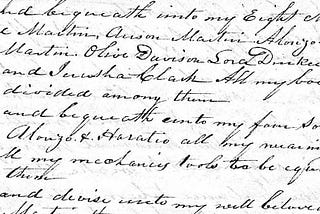 and bequeath unto my Eight
Martin, Anson Martin Alonzo
Martin Olive Davison Lord
and Jerusha Clark All my
divided among them
and bequeath unto my four
Alonzo & Horatio all my
my mechanics tools to be
them
and devise unto my well